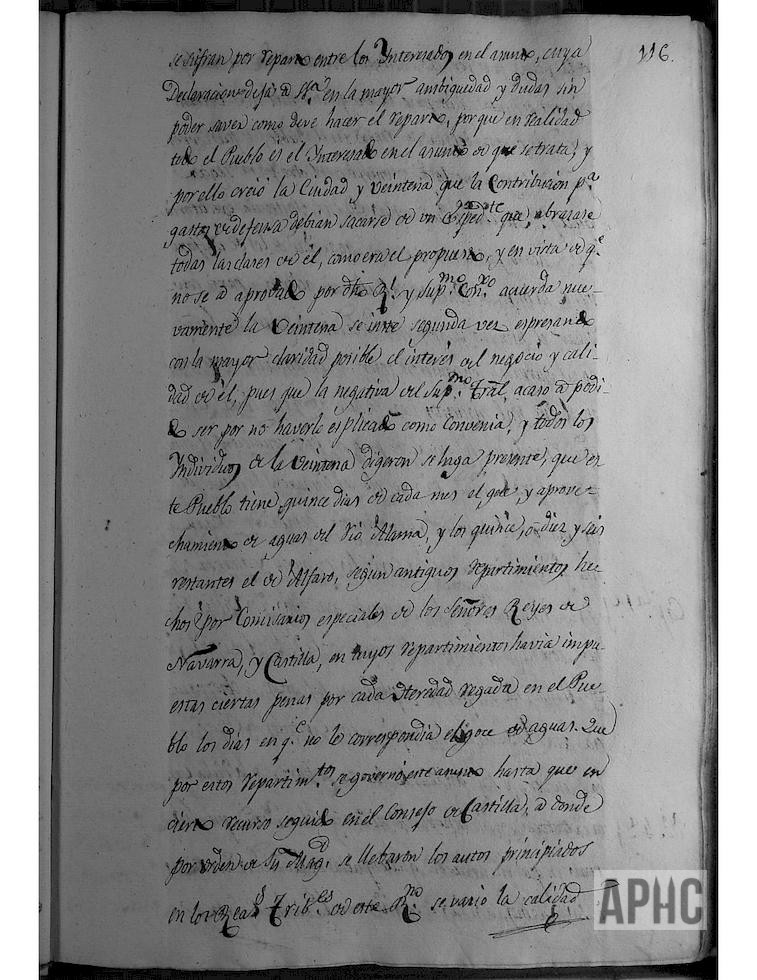 116.
se sufran por reparto entre los Interesados en el asunto, cuya
Declaracion deja a Sª en la mayor ambiguedad y dudas sin
poder saver como deve hacer el reparto, porque en realidad
todo el Pueblo es el Interesado en el asunto de que se trata, y
por ello creió la Ciudad y veintena que la Contribucion pª
gastos de defensa debian sacarse de un Expedte que abrazase
todas las clases de él, como era el propuesto, y en vista de q.e
no se a aprovado por dho Rl. y Supmo. Conxo. acuerda nue-
vamente la Veintena se inste segunda vez espresando
con la mayor claridad posible el interes del negocio y cali-
dad de él, pues que la negativa del Supmo. Tral, acaso a podi-
do ser por no haverlo esplicado como convenia, y todos los
Individuos de la Veintena digeron se haga presente, que es-
te Pueblo tiene quince dias de cada mes el goce, y aprove-
chamiento de aguas del Rio Alama, y los quince, o diez y seis
restantes el de Alfaro, segun antiguos repartimientos he-
chos por Comisarios especiales de los Señores Reyes de
Navarra, y Castilla, en cuyos repartimientos havia impu-
estas ciertas penas por cada Heredad regada en el Pue-
blo los dias en q.e no le correspondia el goce de aguas. Que
por estos repartimtos se governó este asunto hasta que en
cierto recurso seguido en el Consejo de Castilla, a donde
por orden de Su Magd. se llebaron los autos principiados
en los Reas Tribes de este Rno. se vario la calidad
APHC